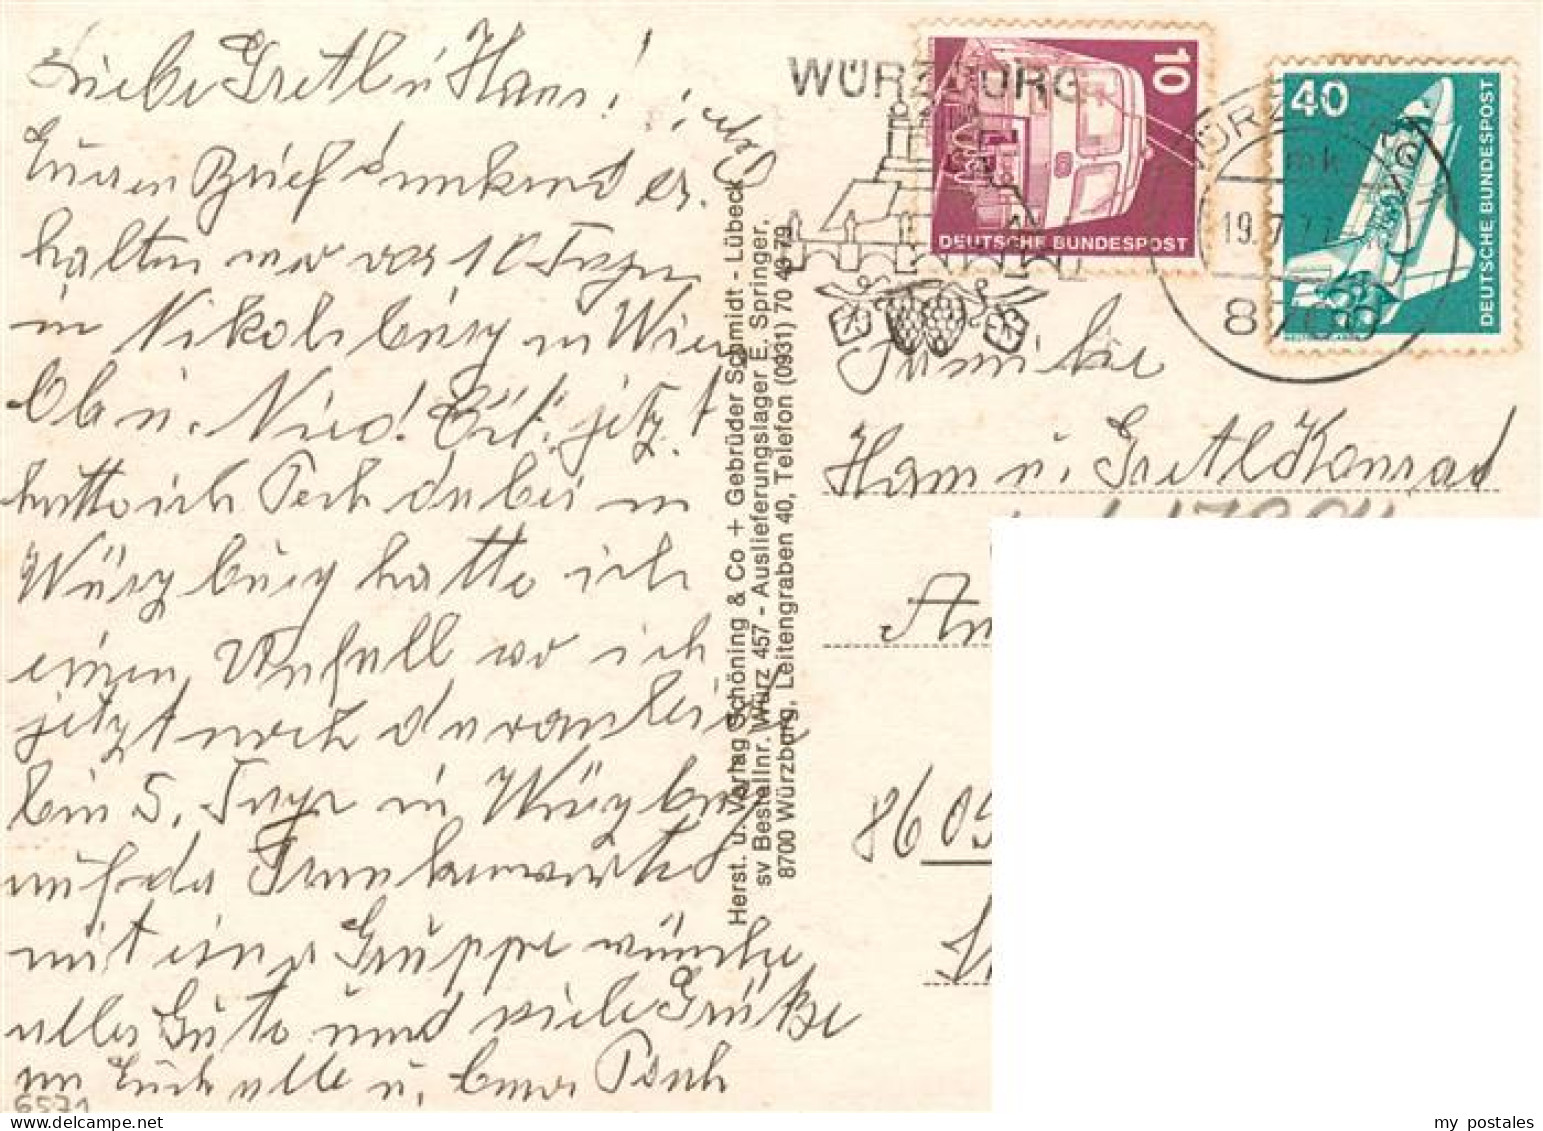 Liebe Gretl u Hans!
Euren Brief dankend er-
halten war vor 10 Tagen
in Nikolsburg in Wien
Ob u. Nied. Öst. jetzt
hatte ich Pech dabei in
Würzburg hatte ich
einen Unfall wo ich
jetzt noch daran leide
bin 5. Tage in Würzburg
auf der Frankenwarte
mit einer Gruppe wünsche
alles Gute und viele Grüße
an Euch alle u.
6571
Herst. u. Verlag Schöning & Co + Gebrüder Schmidt - Lübeck
sv Bestellnr. Würz 457 - Auslieferungslager E. Springer,
8700 Würzburg, Leitengraben 40, Telefon (0931) 70 46 79
WÜRZBURG
10
DEUTSCHE BUNDESPOST
40
DEUTSCHE BUNDESPOST
mk
8700
Familie
Hans u. Gretl Konrad
8605
my postales